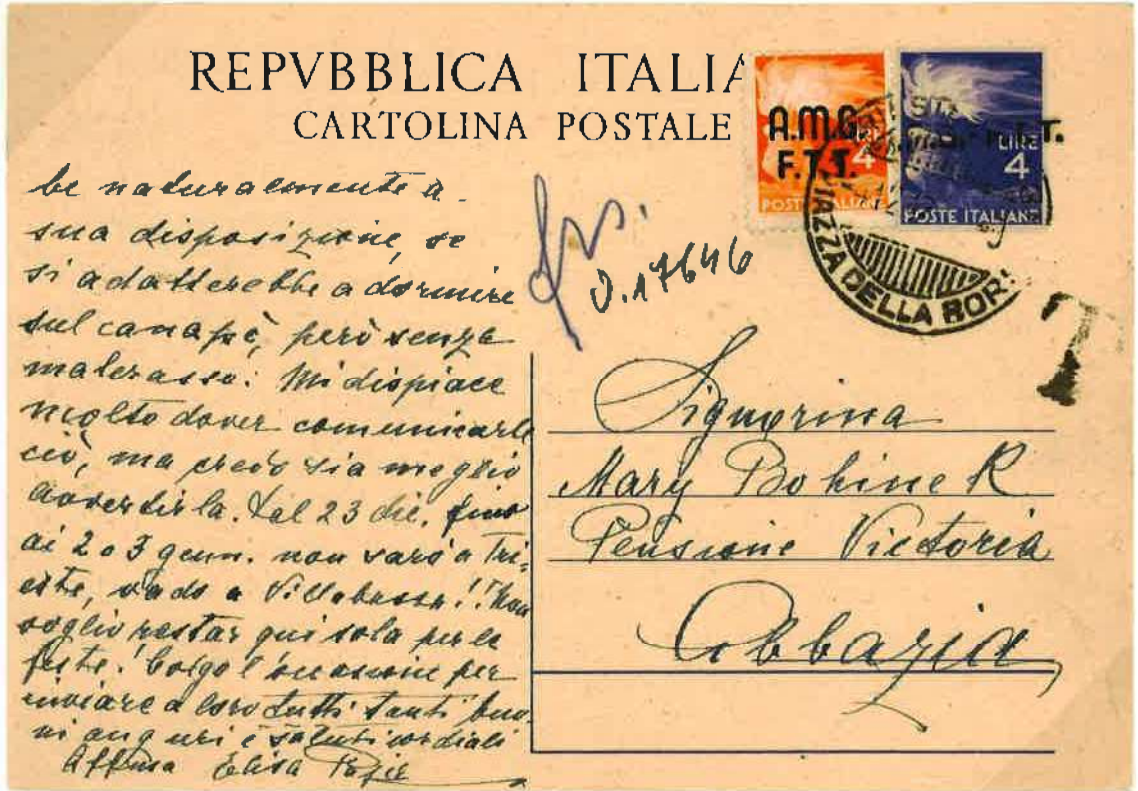 REPVBBLICA ITALIA
CARTOLINA POSTALE
A.M.G.
F.T.T.
LIRE
4
POSTE ITALIANE
F.T.T.
LIRE
4
POSTE ITALIANE
PIAZZA DELLA BOR
T
J.17646
be naturalmente a
sua disposizione, se
si adatterebbe a dormire
sul canapè, però senza
materasso. Mi dispiace
molto dover comunicarle
ciò, ma credo sia meglio
avvertirla. Dal 23 dic. fino
ai 2 o 3 genn. non sarò a Tri-
este, vado a Villabassa!! Non
voglio restar qui sola per le
feste! Colgo l'occasione per
inviare a loro tutti tanti buo-
ni auguri e saluti cordiali
Affma Elisa
Signorina
Mary Bohinek
Pensione Victoria
Abbazia